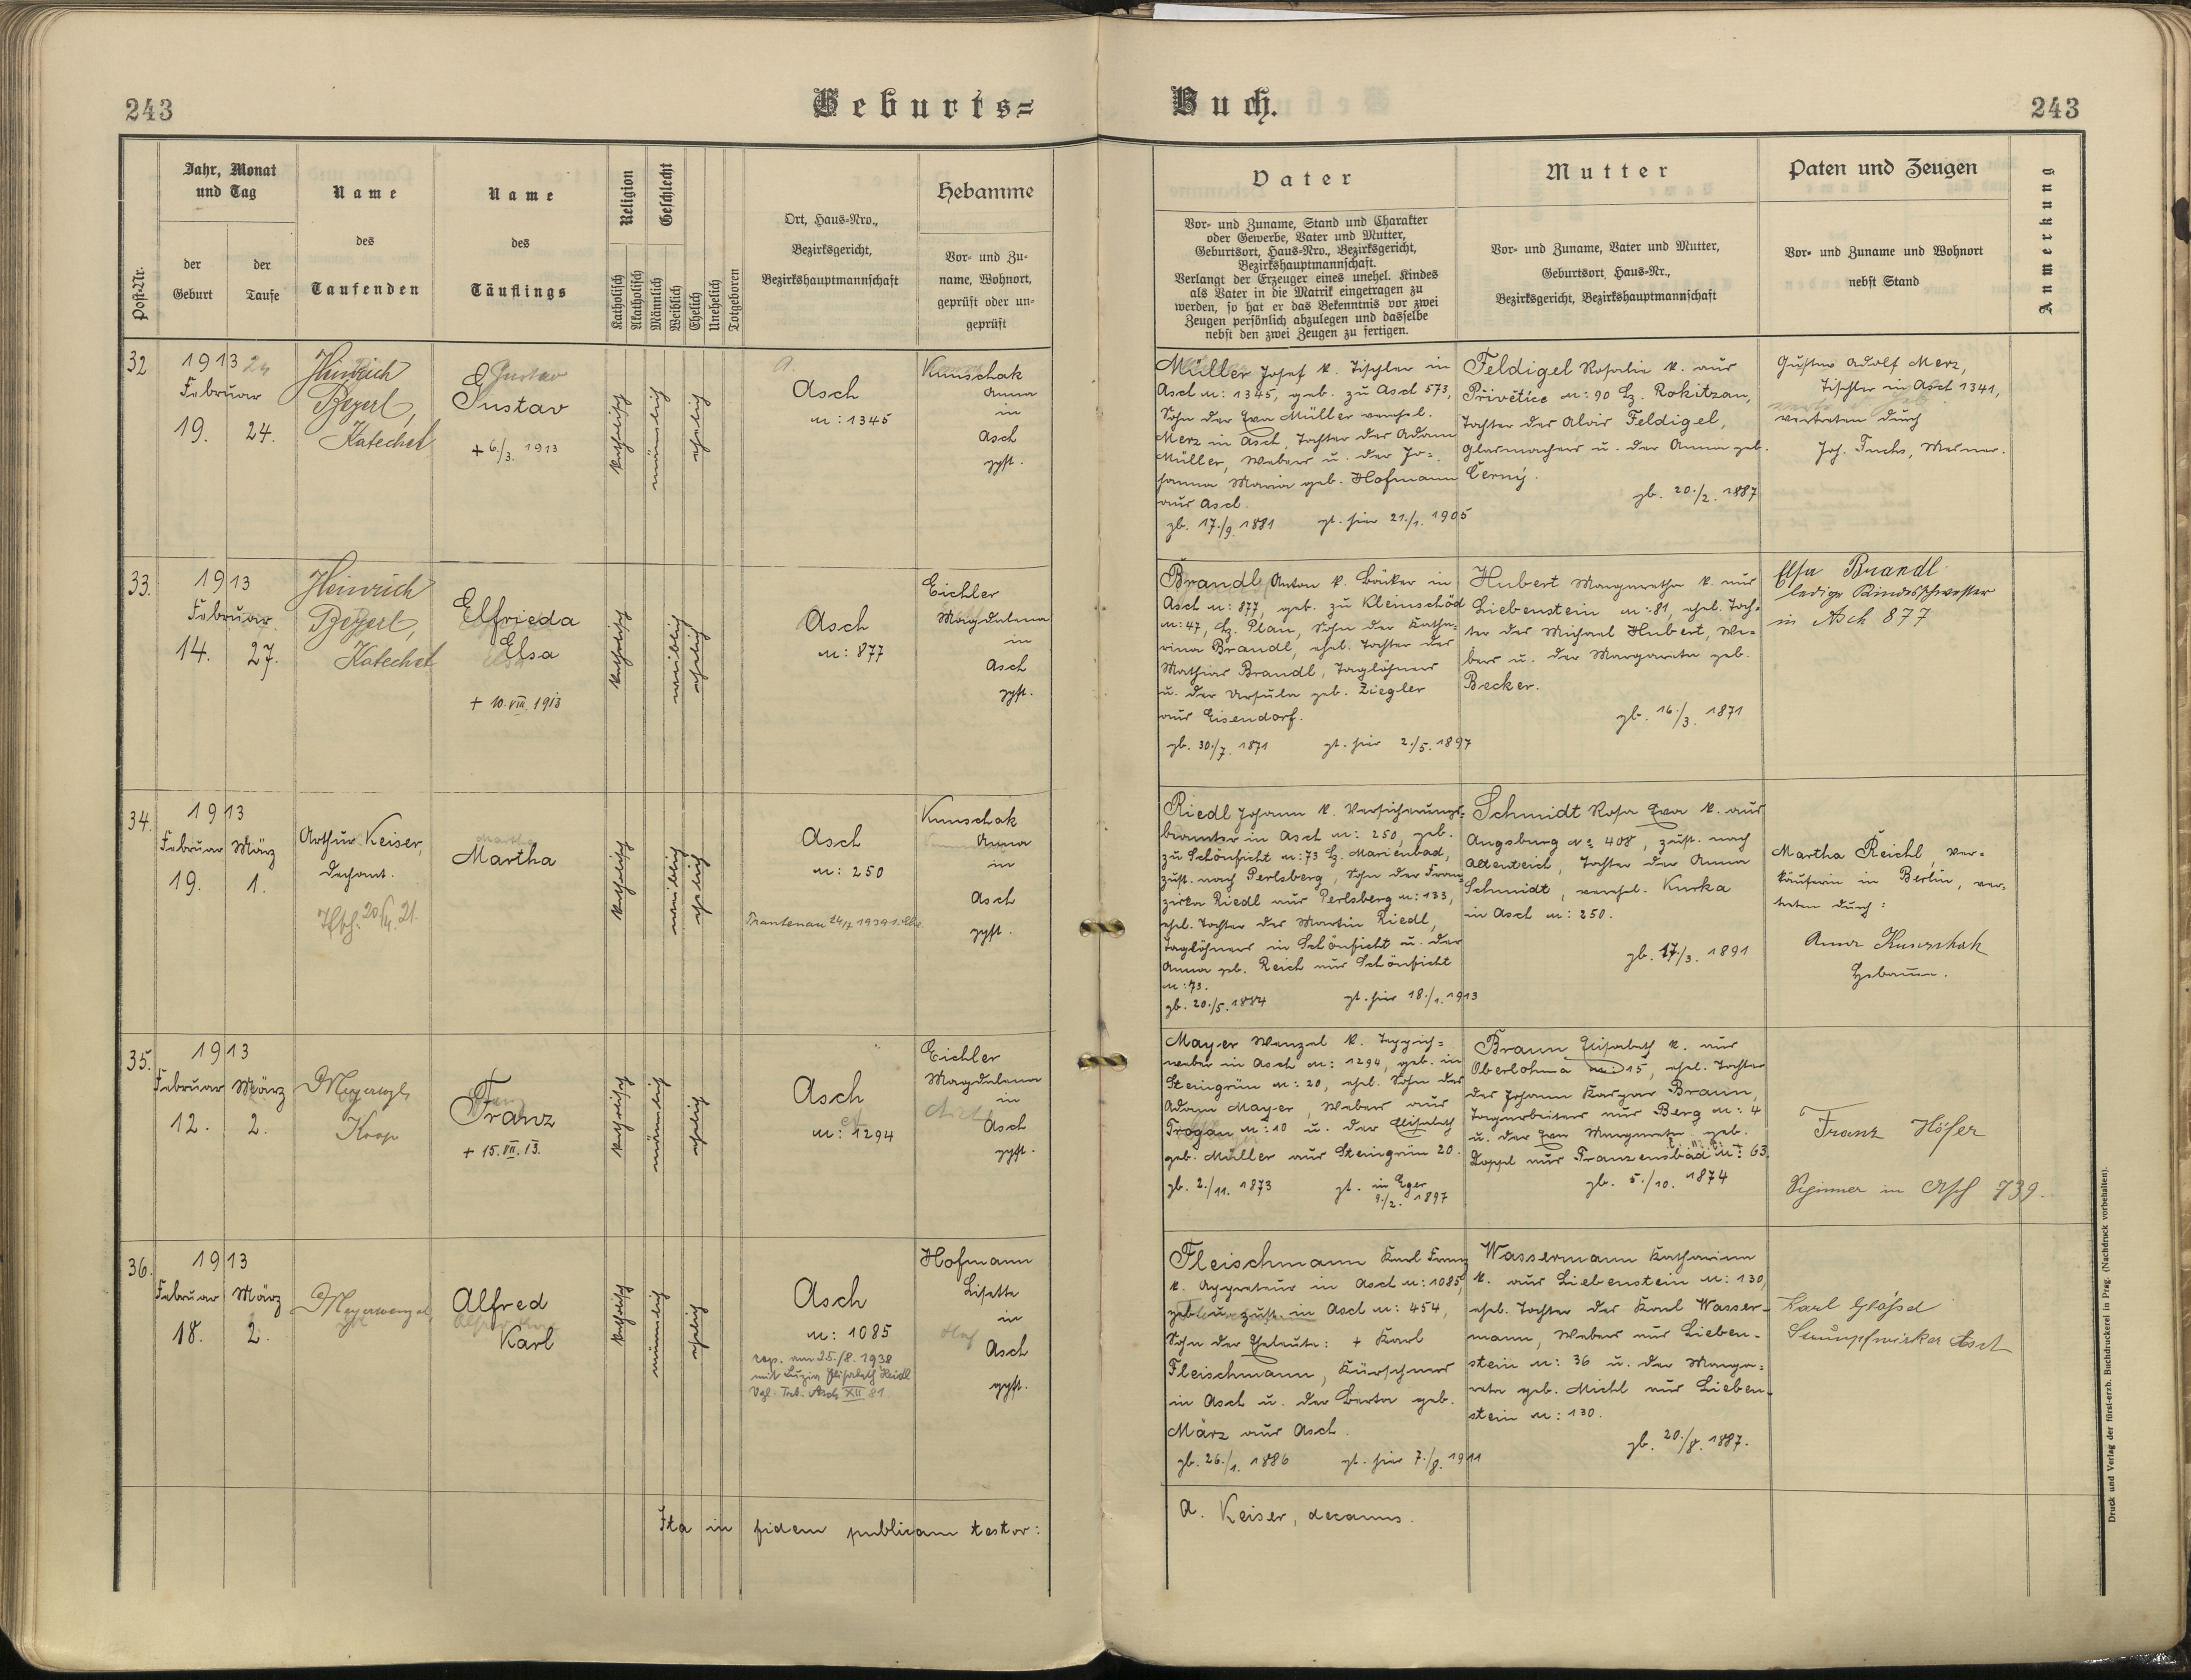 243
Geburts=
Buch.
243
Post-Nr.
Jahr, Monat
und Tag
der
Geburt
der
Taufe
Name
des
Taufenden
Name
des
Täuflings
Religion
Katholisch
Akatholisch
Geschlecht
Männlich
Weiblich
Ehelich
Unehelich
Totgeboren
Ort, Haus-Nro.,
Bezirksgericht,
Bezirkshauptmannschaft
Hebamme
Vor- und Zu-
name, Wohnort,
geprüft oder un-
geprüft
Vater
Vor- und Zuname, Stand und Charakter
oder Gewerbe, Vater und Mutter,
Geburtsort, Haus-Nro., Bezirksgericht,
Bezirkshauptmannschaft.
Verlangt der Erzeuger eines unehel. Kindes
als Vater in die Matrik eingetragen zu
werden, so hat er das Bekenntnis vor zwei
Zeugen persönlich abzulegen und dasselbe
nebst den zwei Zeugen zu fertigen.
Mutter
Vor- und Zuname, Vater und Mutter,
Geburtsort, Haus-Nr.,
Bezirksgericht, Bezirkshauptmannschaft
Paten und Zeugen
Vor- und Zuname und Wohnort
nebst Stand
Anmerkung
32
1913
Februar
19. 24.
Heinrich
Beyerl,
Katechet
Gustav
+ 6./3. 1913
katholisch
männlich
ehelich
Asch
n: 1345
Kunschak
Anna
in
Asch
gpft.
Müller Josef k. Tischler in
Asch n: 1345, geb. zu Asch 573,
Sohn der Eva Müller verehel.
Merz in Asch, Tochter des Adam
Müller, Webers u. der Jo=
hanna Maria geb. Hofmann
aus Asch.
gb. 17./9. 1881 gt. hier 21./1. 1905
Feldigel Rosalie k. aus
Přivětice n: 90 Bz. Rokitzan,
Tochter des Alois Feldigel,
Glasmachers u. der Anna geb.
Černý.
gb. 20./2. 1887
Gustav Adolf Merz,
Tischler in Asch 1341,
vertreten durch
Joh. Fuchs, Mesner.
33.
1913
Februar
14. 27.
Heinrich
Beyerl,
Katechet
Elfrieda
Elsa
+ 10. VIII. 1913
katholisch
weiblich
ehelich
Asch
n: 877
Eichler
Magdalena
in
Asch
gpft.
Brandl Anton k. Bäcker in
Asch n: 877, geb. zu Kleinschöd
n: 47, Bz. Plan, Sohn der Katha=
rina Brandl, ehel. Tochter des
Mathias Brandl, Taglöhners
u. der Ursula geb. Ziegler
aus Eisendorf.
gb. 30./7. 1871 gt. hier 2./5. 1897
Hubert Margaretha k. aus
Liebenstein n: 81, ehel. Toch=
ter des Michael Hubert, We=
bers u. der Margareta geb.
Becker.
gb. 16./3. 1871
Elsa Brandl
ledige Kindesschwester
in Asch 877
34.
1913
Februar März
19. 1.
Arthur Keiser,
Dechant.
Martha
katholisch
weiblich
ehelich
Asch
n: 250
Trautenau
Kunschak
Anna
in
Asch
gpft.
Riedl Johann k. Versicherungs=
beamter in Asch n: 250, geb.
zu Schönficht n: 73 Bz. Marienbad,
zust. nach Perlsberg, Sohn der Fran=
ziska Riedl aus Perlsberg n: 133,
ehel. Tochter des Martin Riedl,
Taglöhners in Schönficht u. der
Anna geb. Reich aus Schönficht
n: 73.
gb. 20./5. 1884 gt. hier 18./1. 1913
Schmidt Rosa Eva k. aus
Augsburg n: 408, zust. nach
Altenteich, Tochter der Anna
Schmidt, verehel. Kurka
in Asch n: 250.
gb. 17./3. 1891
Martha Reichl, Ver=
käuferin in Berlin, ver=
treten durch:
Anna Kunschak
Hebamme.
35.
1913
Februar März
12. 2.
Koop
Franz
+ 15. VII. 13.
katholisch
männlich
ehelich
Asch
n: 1294
Eichler
Magdalena
in
Asch
gpft.
Mayer Wenzel k. Teppich=
weber in Asch n: 1294, geb. in
Steingrün n: 20, ehel. Sohn des
Adam Mayer, Webers aus
Trogau n: 10 u. der Elisabeth
geb. Müller aus Steingrün 20.
gb. 2./11. 1873 gt. in Eger
9./2. 1897
Braun Elisabeth k. aus
Oberlohma n: 15, ehel. Tochter
des Johann Kaspar Braun,
Tagarbeiters aus Berg n: 4
u. der Eva Margareta geb.
Doppl aus Franzensbad n: 63.
gb. 5./10. 1874
Franz Höfer
in Asch 739.
36.
1913
Februar März
18. 2.
Alfred
Karl
katholisch
männlich
ehelich
Asch
n: 1085
cop. am 25./8. 1938
mit Luzia Elisabeth Heidl
Vgl. Trb. Asch XII 81.
Hofmann
Lisette
in
Asch
gpft.
Fleischmann Karl Franz
k. Appreteur in Asch n: 1085,
geb. u. zust. in Asch n: 454,
Sohn der Eheleute: + Karl
Fleischmann, Kürschners
in Asch u. der Berta geb.
März aus Asch.
gb. 26./1. 1886 gt. hier 7./8. 1911
Wassermann Katharina
k. aus Liebenstein n: 130,
ehel. Tochter des Karl Wasser=
mann, Webers aus Lieben=
stein n: 36 u. der Marga=
reta geb. Michl aus Lieben=
stein n: 130.
gb. 20./8. 1887.
Karl Gläsel
Strumpfwirker Asch
Ita in fidem publicam testor:
A. Keiser, decanus.
Druck und Verlag der fürst-erzb. Buchdruckerei in Prag. (Nachdruck vorbehalten).